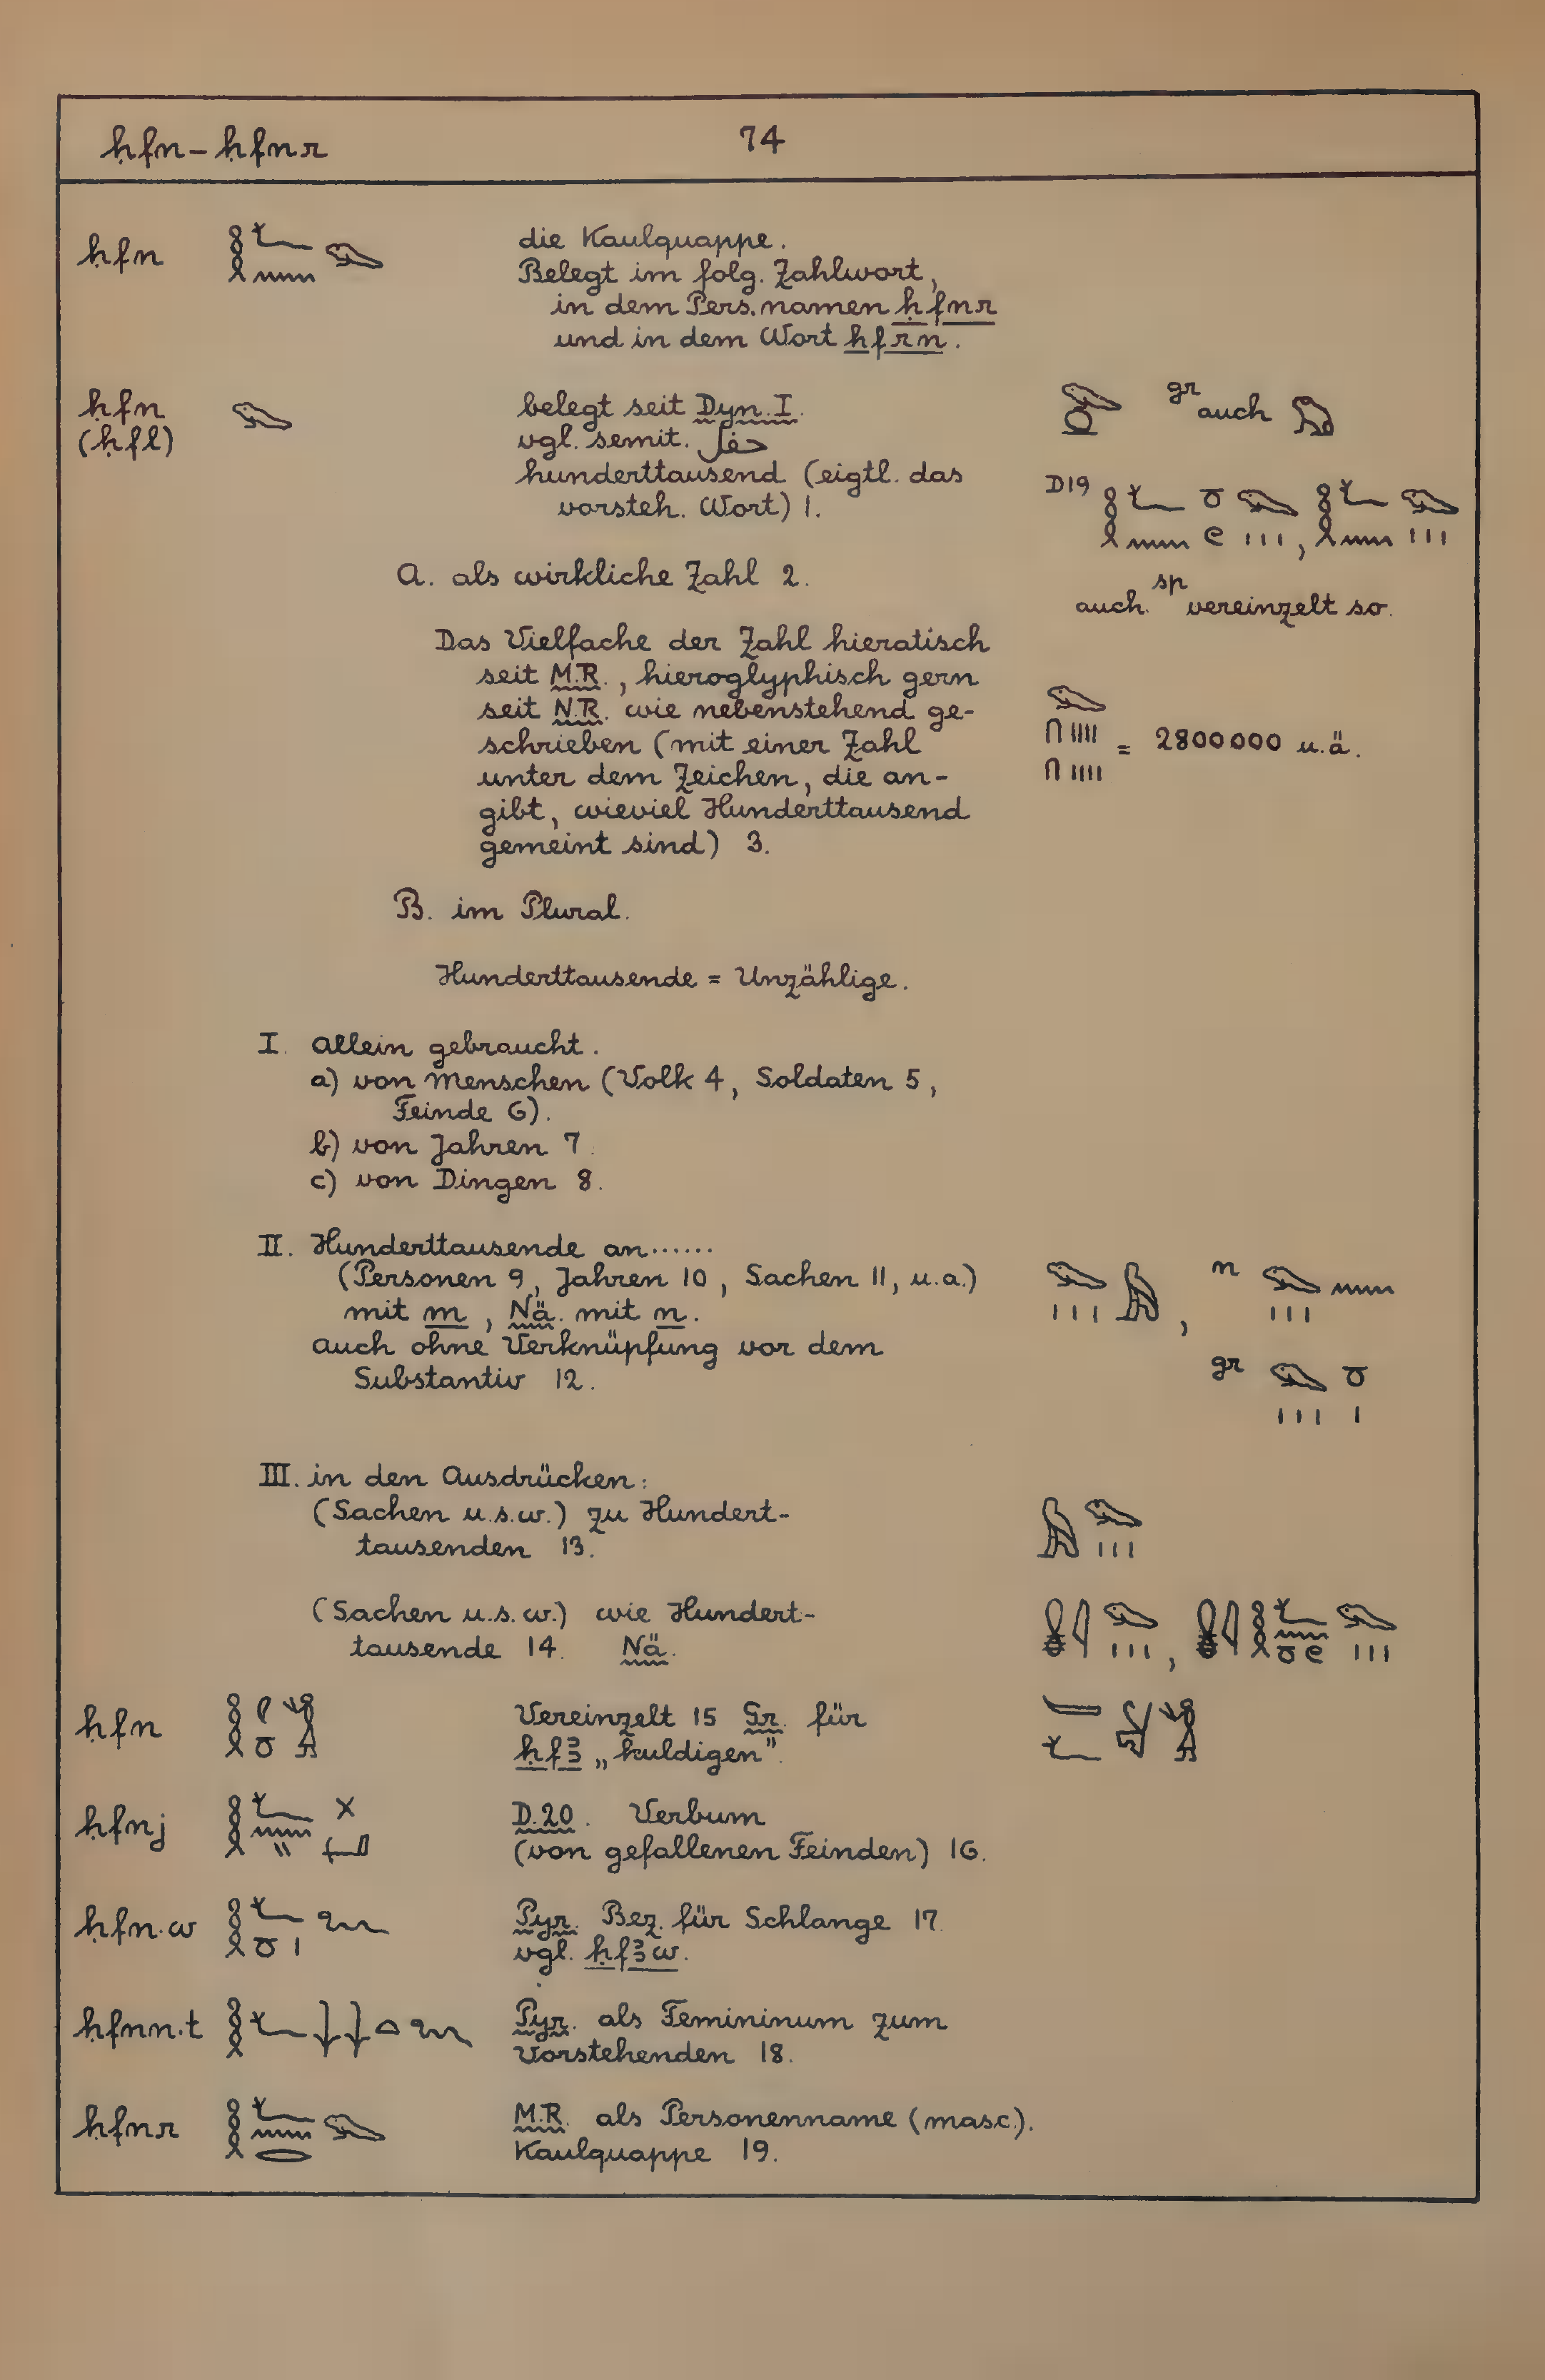 ḥfn – ḥfnr 74
ḥfn 𓎛𓆑𓈖𓆐 die Kaulquappe.
Belegt im folg. Zahlwort,
in dem Pers. namen ḥfnr
und in dem Wort ḥfrn.
ḥfn 𓆐 belegt seit Dyn. I.
(ḥfl) vgl. semit. حفل
hunderttausend (eigtl. das
vorsteh. Wort) 1.
𓆐𓍶 gr auch 𓆏
D19 𓎛𓆑𓈖𓏌𓏲𓆐𓏥, 𓎛𓆑𓈖𓆐𓏥
auch sp vereinzelt so.
A. als wirkliche Zahl 2.
Das Vielfache der Zahl hieratisch
seit M.R., hieroglyphisch gern
seit N.R. wie nebenstehend ge-
schrieben (mit einer Zahl
unter dem Zeichen, die an-
gibt, wieviel Hunderttausend
gemeint sind) 3.
𓆐
𓎆𓏽
𓎆𓏽 = 2800000 u.ä.
B. im Plural.
Hunderttausende = Unzählige.
I. allein gebraucht.
a) von Menschen (Volk 4, Soldaten 5,
Feinde 6).
b) von Jahren 7.
c) von Dingen 8.
II. Hunderttausende an......
(Personen 9, Jahren 10, Sachen 11, u.a.)
mit m, Nä. mit n.
auch ohne Verknüpfung vor dem
Substantiv 12.
𓆐𓏥𓅓, n 𓆐𓏥𓈖
gr 𓆐𓏥𓏌𓏤
III. in den Ausdrücken:
(Sachen u.s.w.) zu Hundert-
tausenden 13.
𓅓𓆐𓏥
(Sachen u.s.w.) wie Hundert-
tausende 14. Nä.
𓏇𓇋𓆐𓏥, 𓏇𓇋𓎛𓆑𓈖𓏌𓏲𓆐𓏥
ḥfn Vereinzelt 15 Gr. für
ḥfꜣ „huldigen".
ḥfnj 𓎛𓆑𓈖𓏭𓏴 D.20. Verbum
(von gefallenen Feinden) 16.
ḥfn·w 𓎛𓆑𓏌𓏤𓆙 Pyr. Bez. für Schlange 17.
vgl. ḥfꜣw.
ḥfnn·t 𓎛𓆑𓇑𓇑𓏏𓆙 Pyr. als Femininum zum
Vorstehenden 18.
ḥfnr 𓎛𓆑𓈖𓂋𓆐 M.R. als Personenname (masc.).
Kaulquappe 19.